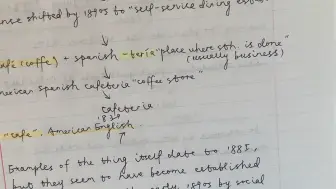 sense shifted by 1890s to "self-service dining est
café (coffe) + spanish -tería "place where sth. is done"
(usually business)
American Spanish cafetería "coffee store"
cafeteria
1830
"café". American English
Examples of the thing itself date to 1885,
but they seem to have become established
1890s by social